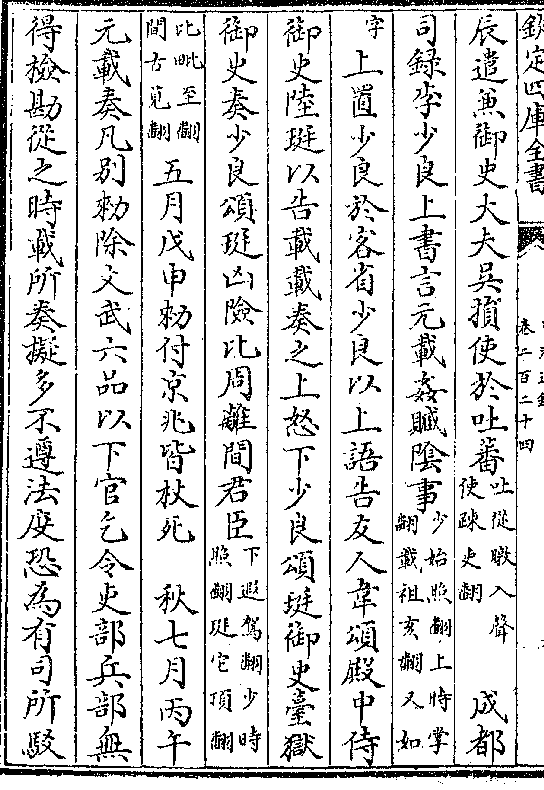 欽定四庫全書
卷二百二十四
辰遣兼御史大夫吳損使於吐蕃吐從暾入聲使疎吏翻 成都
司録李少良上書言元載姦贓陰事少始照翻上時掌翻載祖亥翻又如
字上置少良於客省少良以上語告友人韋頌殿中侍
御史陸珽以告載載奏之上怒下少良頌珽御史臺獄
御史奏少良頌珽凶險比周離間君臣下遐駕翻少時照翻珽它頂翻
比毗至翻間古莧翻五月戊申敕付京兆皆杖死 秋七月丙午
元載奏凡别敕除文武六品以下官乞令吏部兵部無
得檢勘從之時載所奏擬多不遵法度恐為有司所駮